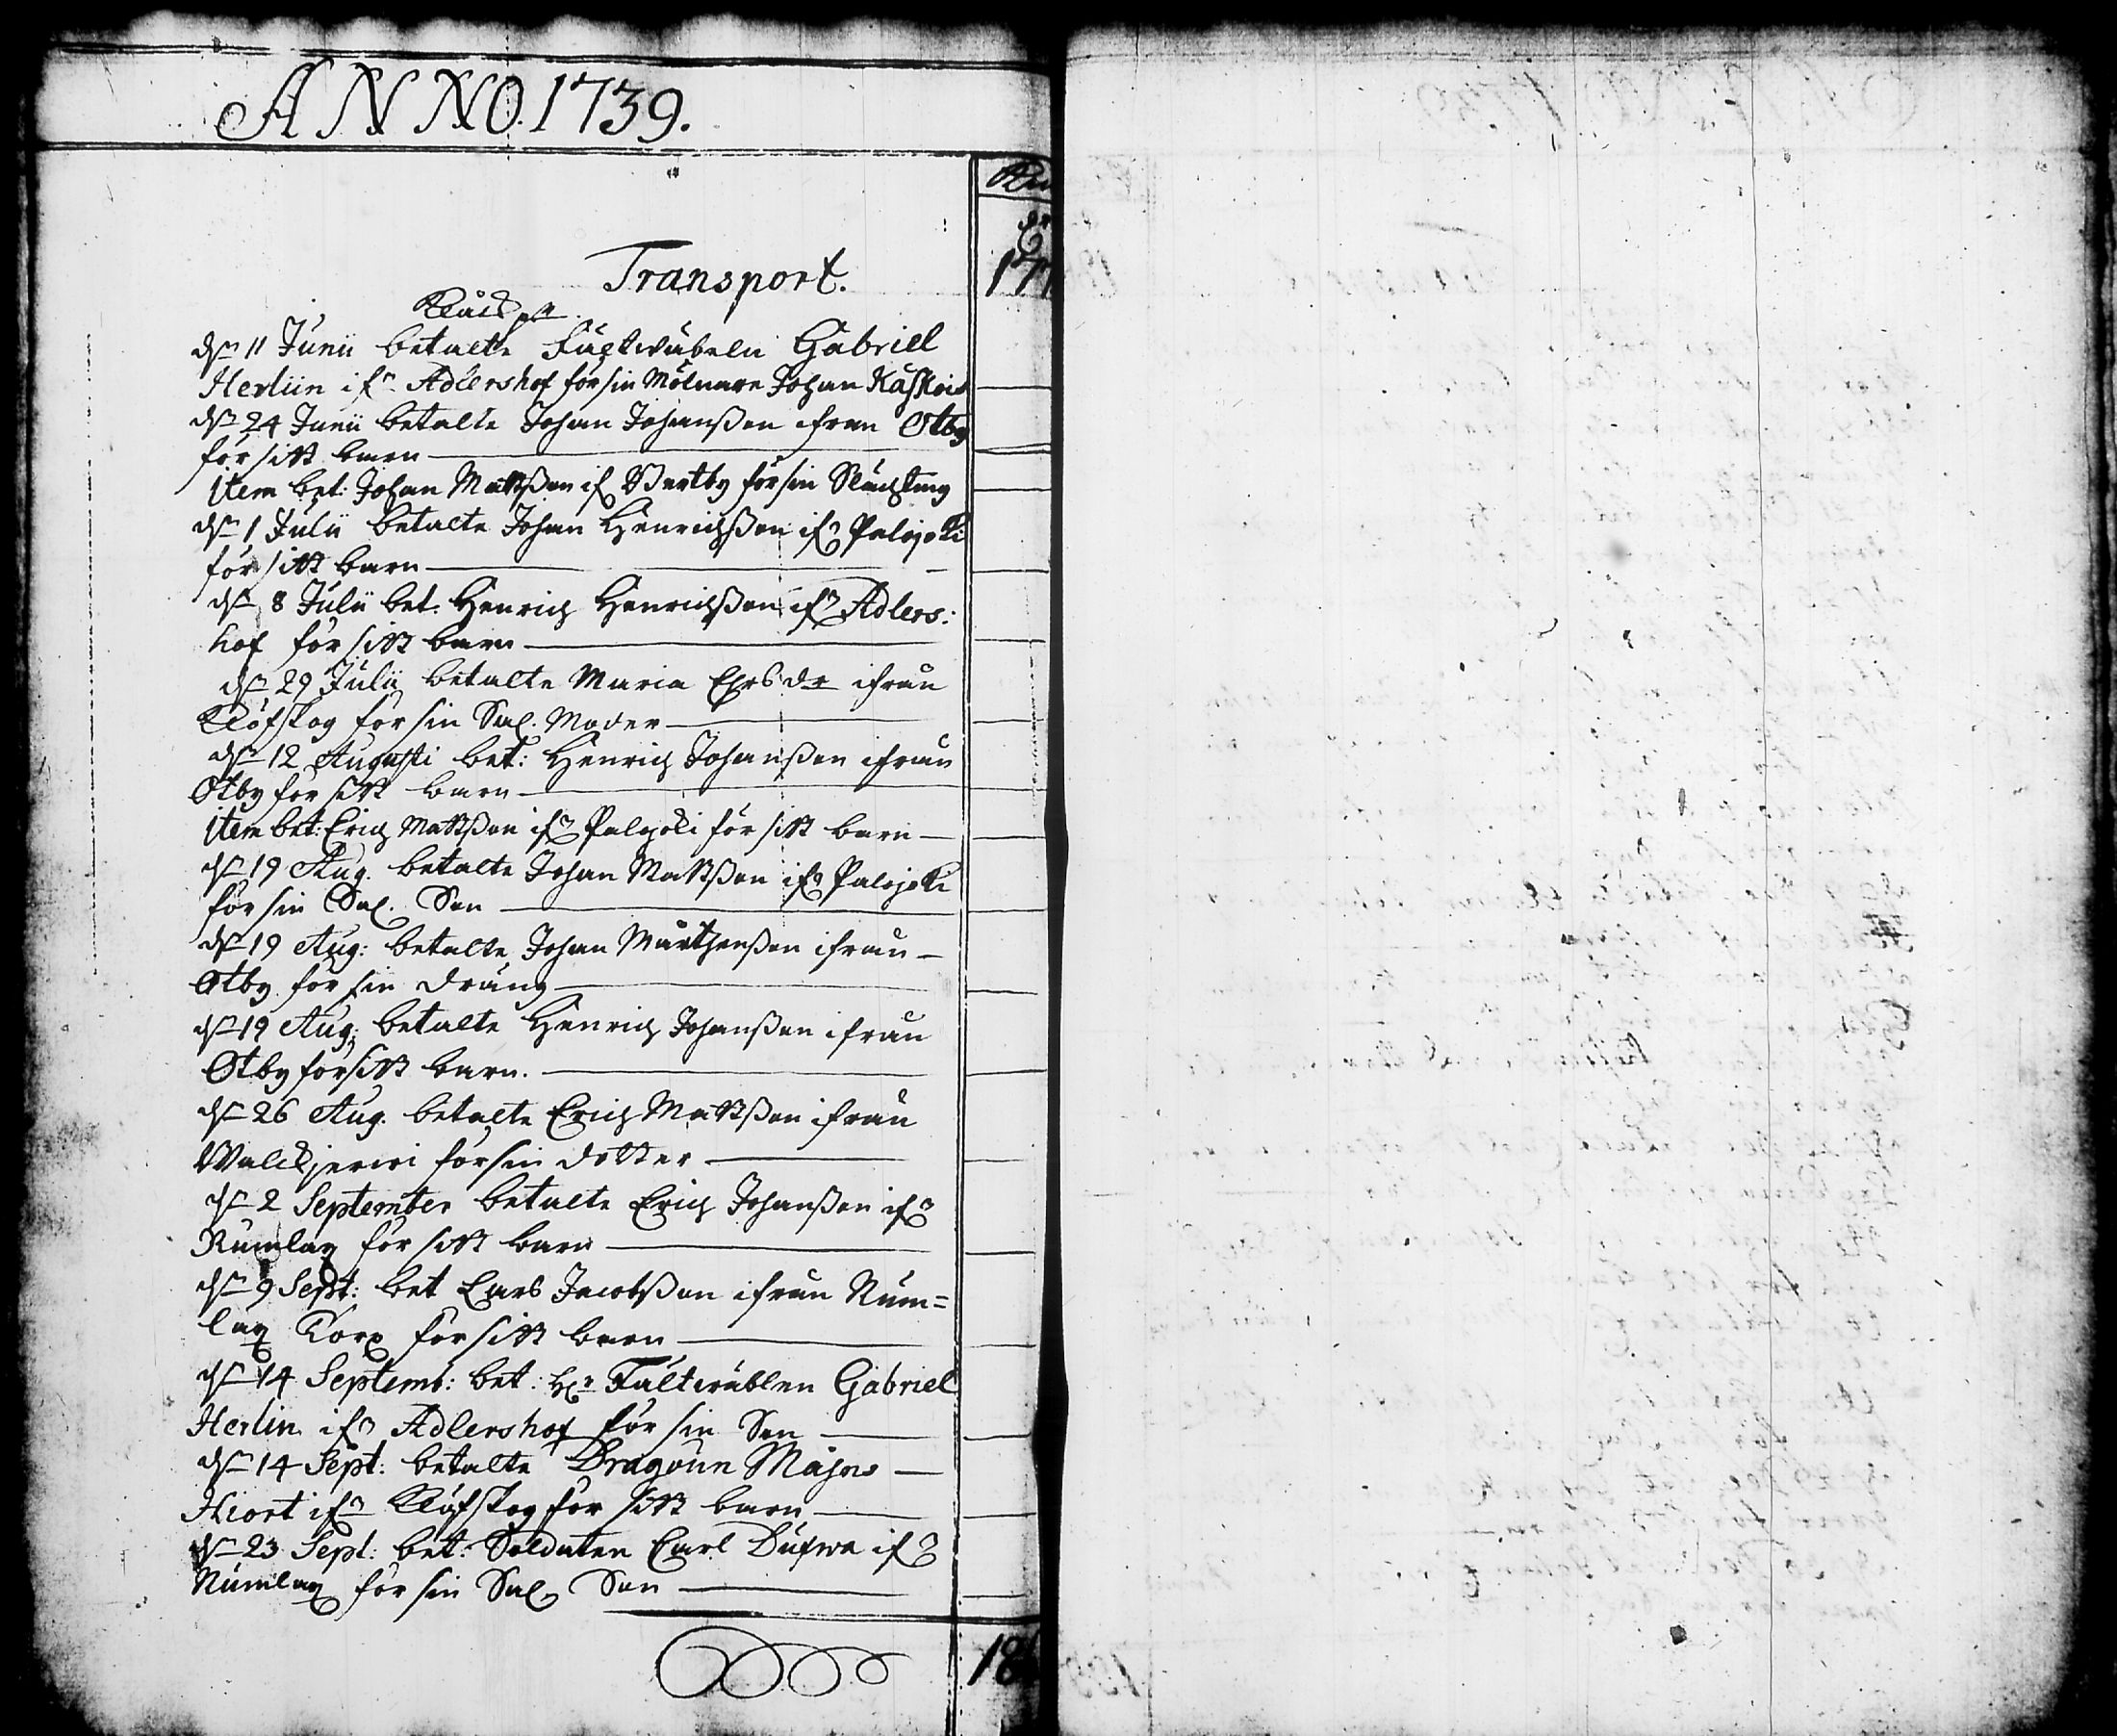 ANNO. 1739.
Transport.
177
dn 11 Junii betalte Fältwäbeln Gabriel
Herliin ifn Adlershof för sin Mölnare Johan
dn 24 Junii betalte Johan Johanßon ifrån Otby
för sitt barn
Item bet: Johan Mattßon if för sin Släckting
dn 1 Julii betalte Johan Henrichßon ifn Palojoki
för sitt barn
dn 8 Julii bet. Henrich Henrichßon ifn Adlers:
hof för sitt barn
dn 29 Julii betalte Maria Ersdr ifrån
Klöfskog för sin Sal. Moder
dn 12 Augusti bet: Henrich Johanßon ifrån
Otby för sitt barn
Item bet: Erich Mattßon ifn Palojoki för sitt barn
dn 19 Aug. betalte Johan Mattßon ifn Palojoki
för sin Sal. Son
dn 19 Aug: betalte Johan Mårthenßon ifrån
Otby för sin dräng
dn 19 Aug: betalte Henrich Johanßon ifrån
Otby för sitt barn.
dn 26 Aug. betalte Erich Mattßon ifrån
Walckjerwi för sin dotter
dn 2 September betalte Erich Johanßon ifn
Numlax för sitt barn
dn 9 Sept: bet Lars Jacobßon ifrån Num=
lax Torp för sitt barn
dn 14 Septemb: bet: Hr Fältwäblen Gabriel
Herlin ifn Adlershof för sin Son
dn 14 Sept: betalte Dragoun Majors
Hiort ifn Klöfskog för sitt barn
dn 23 Sept: bet: Soldaten Carl Dufwa ifn
Numlax för sin Sal. Son